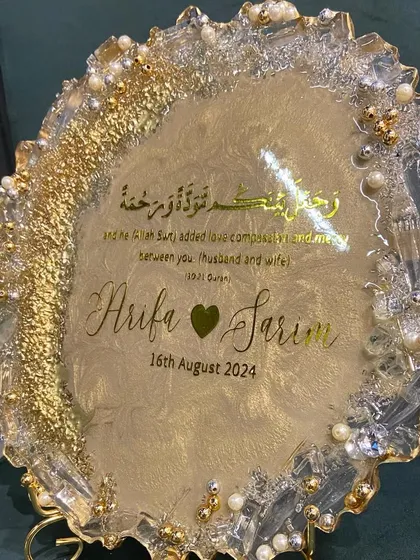 وَجَعَلَ بَيْنَكُم مَّوَدَّةً وَرَحْمَةً
and he (Allah Swt) added love compassion and mercy
between you. (husband and wife)
(30:21 Quran)
Arifa Sarim
16th August 2024